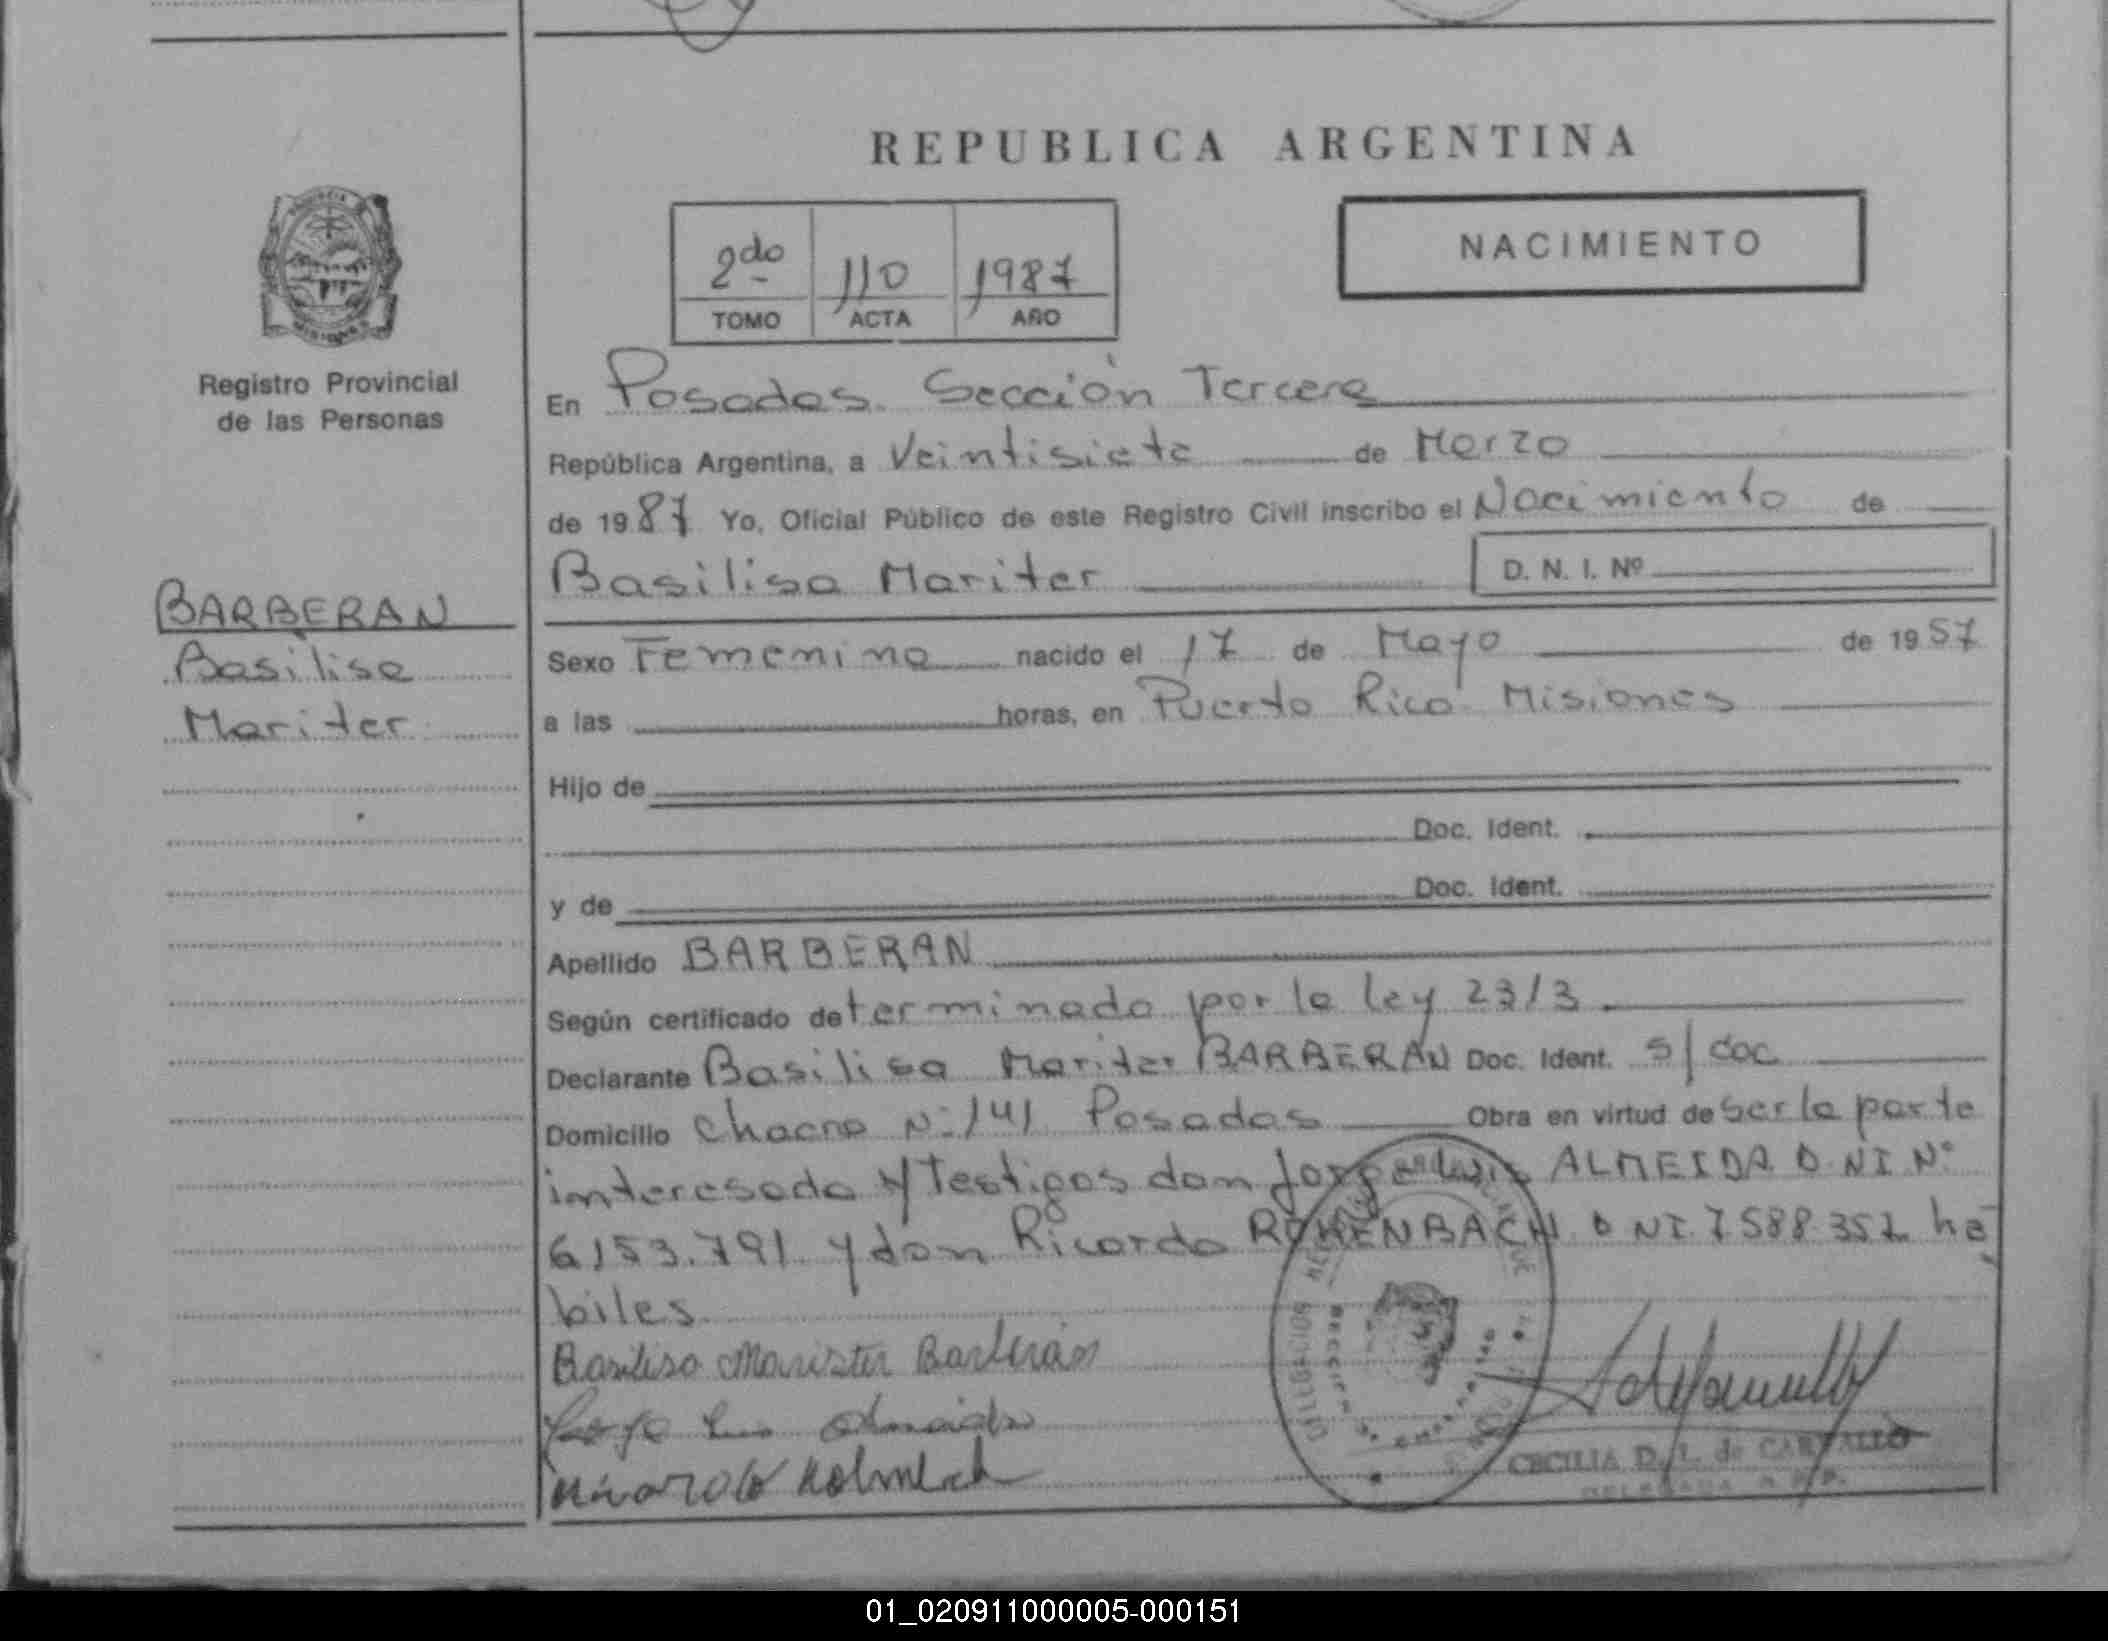 REPUBLICA ARGENTINA
2do 110 1987
TOMO ACTA AÑO
NACIMIENTO
Registro Provincial
de las Personas
BARBERAN
Basilisa
Mariter
En Posadas. Sección Tercera
República Argentina, a Veintisiete de Marzo
de 1987 Yo, Oficial Público de este Registro Civil inscribo el Nacimiento de
Basilisa Mariter D. N. I. Nº
Sexo Femenina nacido el 17 de Mayo de 1957
a las horas, en Puerto Rico Misiones
Hijo de
Doc. Ident.
y de Doc. Ident.
Apellido BARBERAN
Según certificado determinado por la ley 2313
Declarante Basilisa Mariter BARBERAN Doc. Ident. s/doc
Domicilio Chacra Nº 141 Posadas Obra en virtud de ser la parte
interesada y Testigos don Jorge Luis ALMEIDA D NI Nº
6153.791 y don Ricardo D NI. 7588.352 há
biles
Basilisa Marister Barberán
Jorge Luis Almeida
CECILIA D. L. de CARVALLO
DELEGADA R.P.P.
01_020911000005-000151